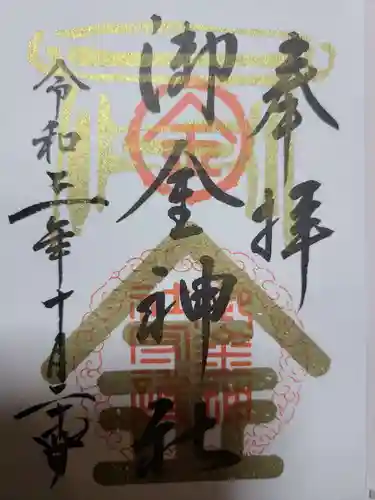 奉拝
御金神社
令和三年十月二
金